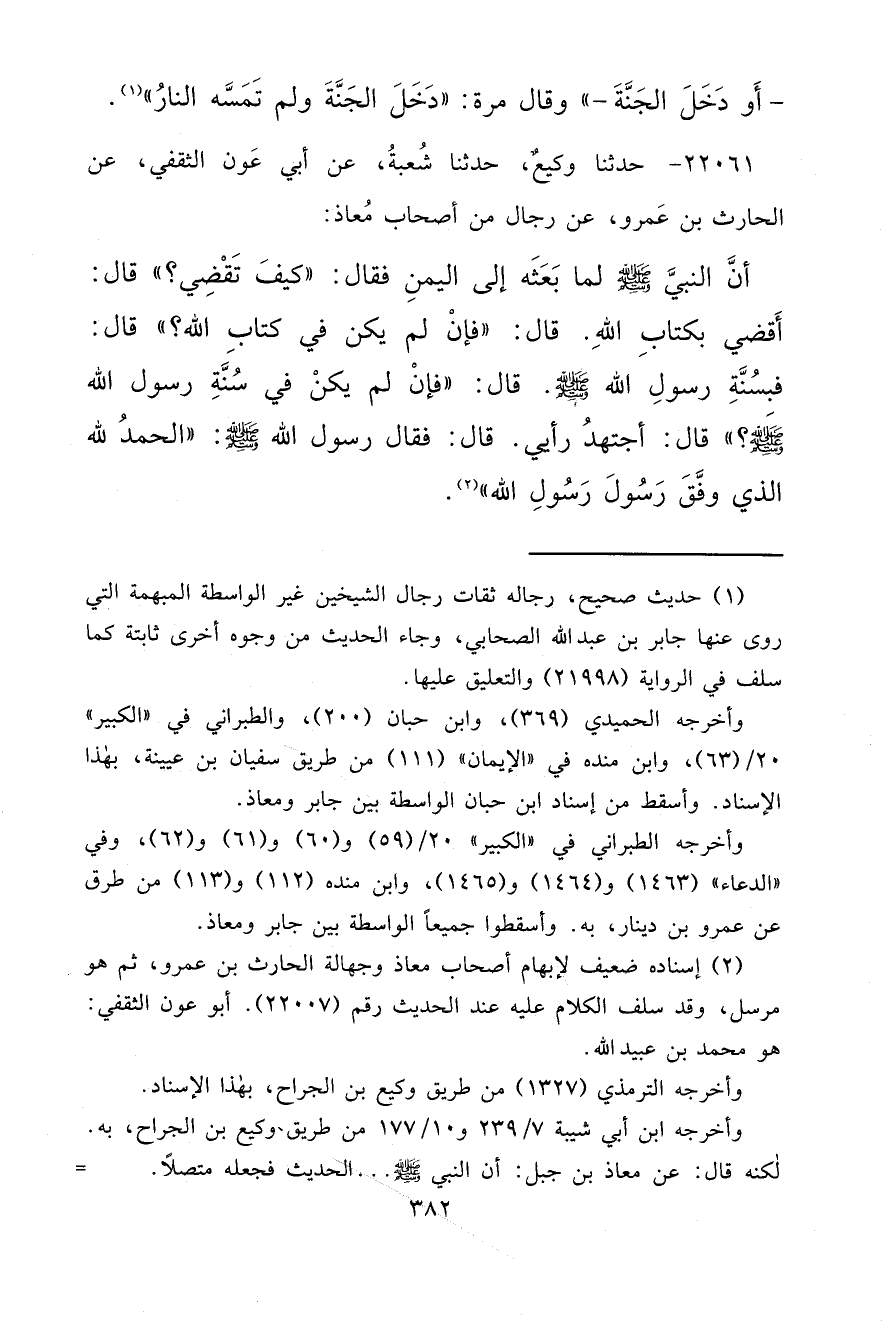 - أَو دَخَلَ الجَنَّةَ -» وقال مرة: «دَخَلَ الجَنَّةَ ولم تَمَسَّه النارُ»(١).
٢٢٠٦١- حدثنا وكيعٌ، حدثنا شُعبةُ، عن أبي عَون الثقفي، عن
الحارث بن عَمرو، عن رجال من أصحاب مُعاذ:
أنَّ النبيَّ ﷺ لما بَعَثَه إلى اليمنِ فقال: «كيفَ تَقْضِي؟» قال:
أَقضي بكتابِ اللهِ. قال: «فإنْ لم يكن في كتابِ الله؟» قال:
فبِسُنَّةِ رسولِ الله ﷺ. قال: «فإنْ لم يكنْ في سُنَّةِ رسول الله
ﷺ؟» قال: أجتهدُ رأيي. قال: فقال رسول الله ﷺ: «الحمدُ لله
الذي وفَّقَ رَسُولَ رَسُولِ الله»(٢).
(١) حديث صحيح، رجاله ثقات رجال الشيخين غير الواسطة المبهمة التي
روى عنها جابر بن عبدالله الصحابي، وجاء الحديث من وجوه أخرى ثابتة كما
سلف في الرواية (٢١٩٩٨) والتعليق عليها.
وأخرجه الحميدي (٣٦٩)، وابن حبان (٢٠٠)، والطبراني في «الكبير»
٢٠/(٦٣)، وابن منده في «الإيمان» (١١١) من طريق سفيان بن عيينة، بهٰذا
الإسناد. وأسقط من إسناد ابن حبان الواسطة بين جابر ومعاذ.
وأخرجه الطبراني في «الكبير» ٢٠/(٥٩) و(٦٠) و(٦١) و(٦٢)، وفي
«الدعاء» (١٤٦٣) و(١٤٦٤) و(١٤٦٥)، وابن منده (١١٢) و(١١٣) من طرق
عن عمرو بن دينار، به. وأسقطوا جميعاً الواسطة بين جابر ومعاذ.
(٢) إسناده ضعيف لإبهام أصحاب معاذ وجهالة الحارث بن عمرو، ثم هو
مرسل، وقد سلف الكلام عليه عند الحديث رقم (٢٢٠٠٧). أبو عون الثقفي:
هو محمد بن عبيدالله.
وأخرجه الترمذي (١٣٢٧) من طريق وكيع بن الجراح، بهٰذا الإسناد.
وأخرجه ابن أبي شيبة ٢٣٩/٧ و١٧٧/١٠ من طريق وكيع بن الجراح، به.
لٰكنه قال: عن معاذ بن جبل: أن النبي ﷺ... الحديث فجعله متصلاً. =
٣٨٢